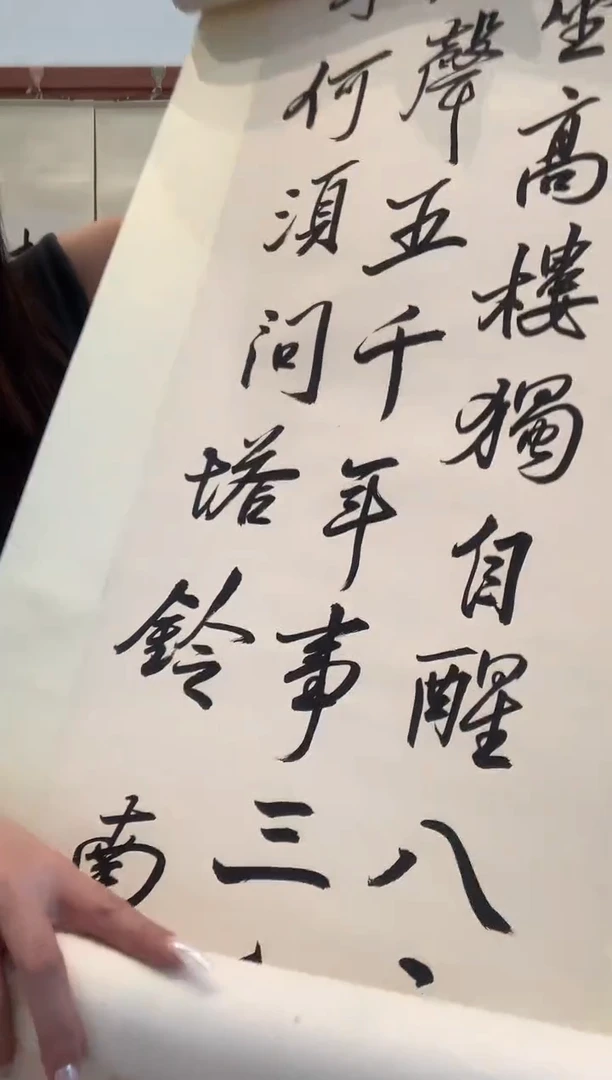 坐高樓獨自醒八
聲五千年事三
何須問塔鈴南